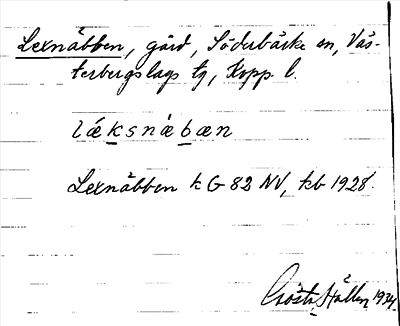 Lexnäbben, gård, Söderbärke sn, Väs-
terbergslags tg, Kopp. l.
lǽksnǽbæn
Lexnäbben k G 82 NV, kb 1928.
Gösta Hållen 1934.